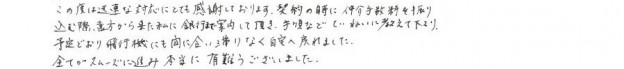 この度は迅速な対応にとても感謝しております。契約の時に仲介手数料を振り
込む際、遠方から来た私に銀行まで案内して頂き、手順などていねいに教えて下さり、
予定どおり飛行機にも間に合い滞りなく自宅へ戻れました。
全てがスムーズに進み本当に有難うございました。